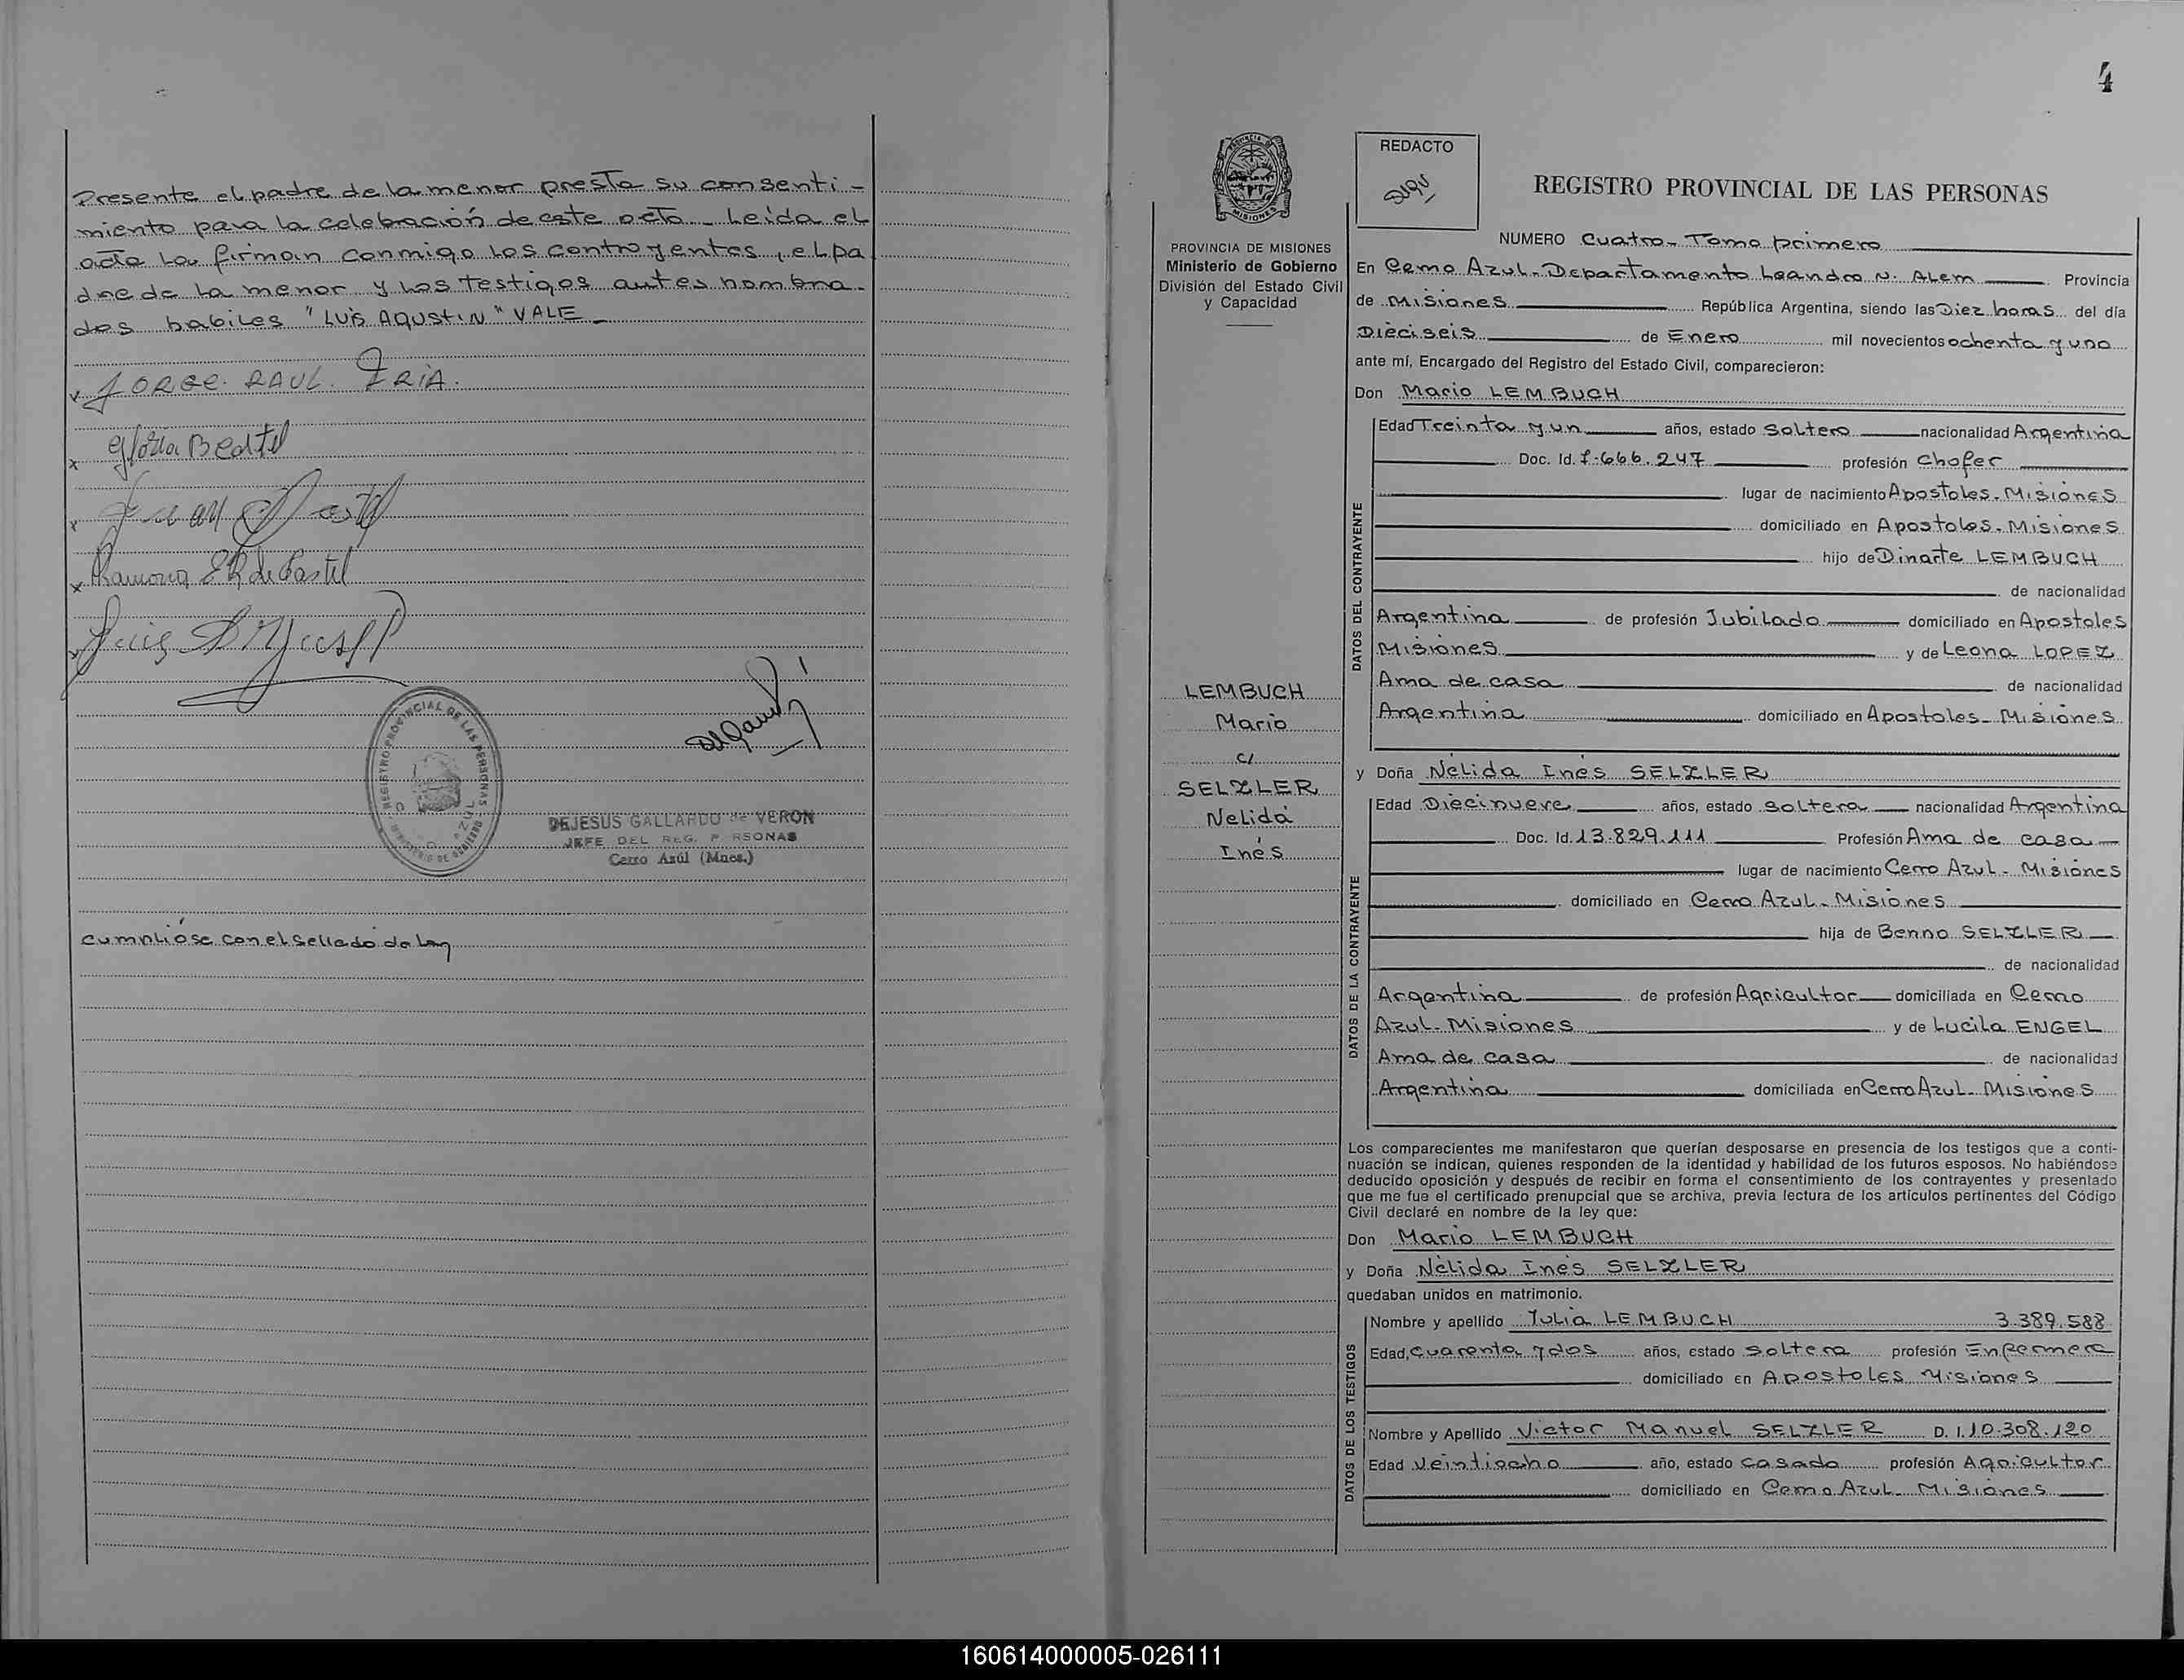 Presente el padre de la menor presta su consenti-
miento para la celebración de este acto - Leida el
acta la firman conmigo los contrayentes, el pa
dre de la menor y los testigos antes nombra-
dos habiles "LUIS AGUSTIN" VALE
x JORGE. RAUL. IRIA.
x Gloria Beatil
x Juan
x Ramona de Bastil
x Luis
REGISTRO PROVINCIAL DE LAS PERSONAS
DEJESUS GALLARDO de VERON
JEFE DEL REG. P RSONAS
Cerro Azúl (Mnes.)
cumplióse con el sellado de Ley
4
REDACTO
REGISTRO PROVINCIAL DE LAS PERSONAS
PROVINCIA DE MISIONES
Ministerio de Gobierno
División del Estado Civil
y Capacidad
LEMBUCH
Mario
c/
SELZLER
Nelida
Inés
NUMERO Cuatro - Tomo primero
En Cerro Azul - Departamento Leandro N. Alem Provincia
de Misiones República Argentina, siendo las Diez horas del día
Dieciseis de Enero mil novecientos ochenta y uno
ante mí, Encargado del Registro del Estado Civil, comparecieron:
Don Mario LEMBUCH
DATOS DEL CONTRAYENTE
Edad Treinta y un años, estado Soltero nacionalidad Argentina
Doc. Id. 7.666.247 profesión Chofer
lugar de nacimiento Apostoles - Misiones
domiciliado en Apostoles - Misiones
hijo de Dinarte LEMBUCH
de nacionalidad
Argentina de profesión Jubilado domiciliado en Apostoles
Misiones y de Leona LOPEZ
Ama de casa de nacionalidad
Argentina domiciliado en Apostoles - Misiones
y Doña Nélida Inés SELZLER
DATOS DE LA CONTRAYENTE
Edad Diecinueve años, estado Soltera nacionalidad Argentina
Doc. Id. 13.829.111 Profesión Ama de casa
lugar de nacimiento Cerro Azul - Misiones
domiciliado en Cerro Azul - Misiones
hija de Benno SELZLER
de nacionalidad
Argentina de profesión Agricultor domiciliada en Cerro
Azul - Misiones y de Lucila ENGEL
Ama de casa de nacionalidad
Argentina domiciliada en Cerro Azul - Misiones
Los comparecientes me manifestaron que querían desposarse en presencia de los testigos que a conti-
nuación se indican, quienes responden de la identidad y habilidad de los futuros esposos. No habiéndose
deducido oposición y después de recibir en forma el consentimiento de los contrayentes y presentado
que me fue el certificado prenupcial que se archiva, previa lectura de los artículos pertinentes del Código
Civil declaré en nombre de la ley que:
Don Mario LEMBUCH
y Doña Nélida Inés SELZLER
quedaban unidos en matrimonio.
DATOS DE LOS TESTIGOS
Nombre y apellido Julia LEMBUCH 3.389.588
Edad, Cuarenta y dos años, estado Soltera profesión Enfermera
domiciliado en Apostoles Misiones
Nombre y Apellido Victor Manuel SELZLER D. I. 10.308.120
Edad Veintiocho año, estado Casado profesión Agricultor
domiciliado en Cerro Azul - Misiones
160614000005-026111